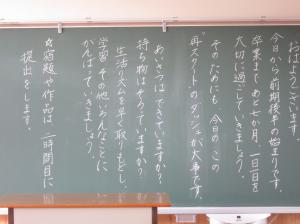 おはようございます。
今日から前期後半の始まりです。
卒業まであと七か月、一日一日を
大切に過ごしていきましょう。
そのためにも、今日の、この
"再スタートのダッシュ"が大事です。
あいさつはできていますか?
持ち物はそろっていますか?
生活リズムを早く取りもどし、
学習、その他いろんなことに
がんばっていきましょう。
☆宿題や作品は、二時間目に
提出をします。